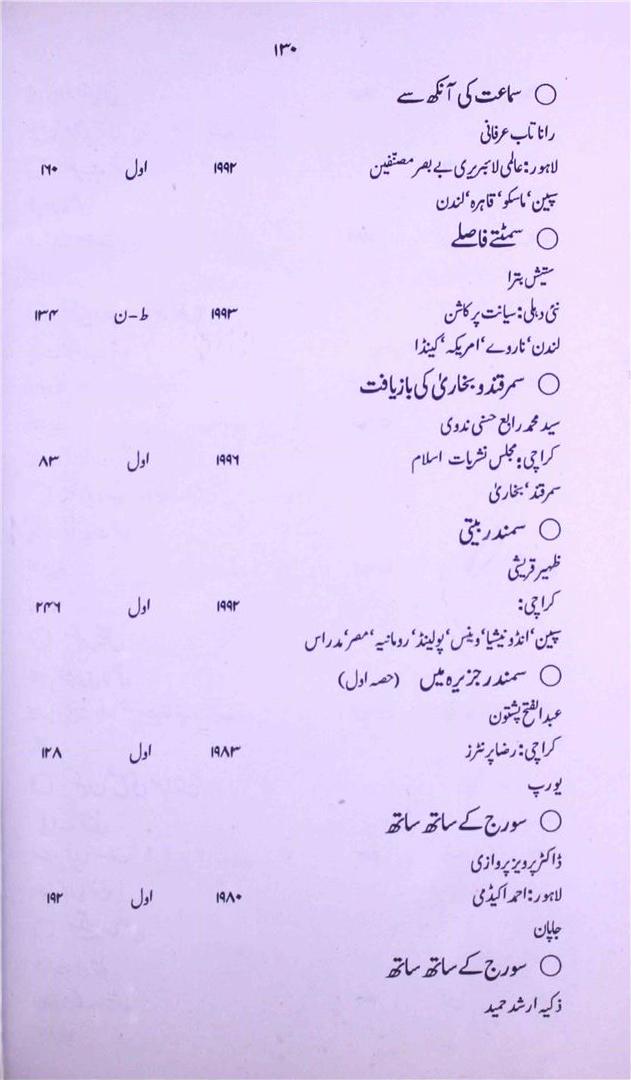 ۱۳۰
○ سماعت کی آنکھ سے
رانا تاب عرفانی
لاہور: عالمی لائبریری بے بصر مصنّفین ۱۹۹۲ اول ۱۶۰
سپین، ماسکو، قاہرہ، لندن
○ سمٹتے فاصلے
ستیش بترا
نئی دہلی: سیانت پرکاشن ۱۹۹۳ ط-ن ۱۳۴
لندن، ناروے، امریکہ، کینڈا
○ سمرقند و بخاریٰ کی بازیافت
سید محمد رابع حسنی ندوی
کراچی: مجلس نشریات اسلام ۱۹۹۶ اول ۸۳
سمرقند، بخاریٰ
○ سمندر بیتی
ظہیر قریشی
کراچی: ۱۹۹۲ اول ۲۴۶
سپین، انڈونیشیا، وینس، پولینڈ، رومانیہ، مصر، مدراس
○ سمندر جزیرہ میں (حصہ اول)
عبدالفتح پشتون
کراچی: رضا پرنٹرز ۱۹۸۳ اول ۱۲۸
یورپ
○ سورج کے ساتھ ساتھ
ڈاکٹر پرویز پروازی
لاہور: احمد اکیڈمی ۱۹۸۰ اول ۱۹۲
جاپان
○ سورج کے ساتھ ساتھ
ذکیہ ارشد حمید